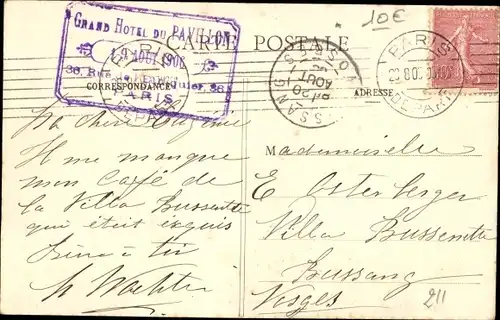 10€
GRAND HOTEL DU PAVILLON
19 AOUT 1906
36, Rue de l'Echiquier, 36
PARIS
CARTE POSTALE
PARIS
DEPART
BUSSANG
AOUT
CORRESPONDANCE
ADRESSE
Ma chère Eugénie
Il me manque
mon Café de
la Villa Bussenette
qui était exquis
Bien à toi
Mademoiselle
E Osterberger
Villa Bussenette
Bussang
Vosges
211